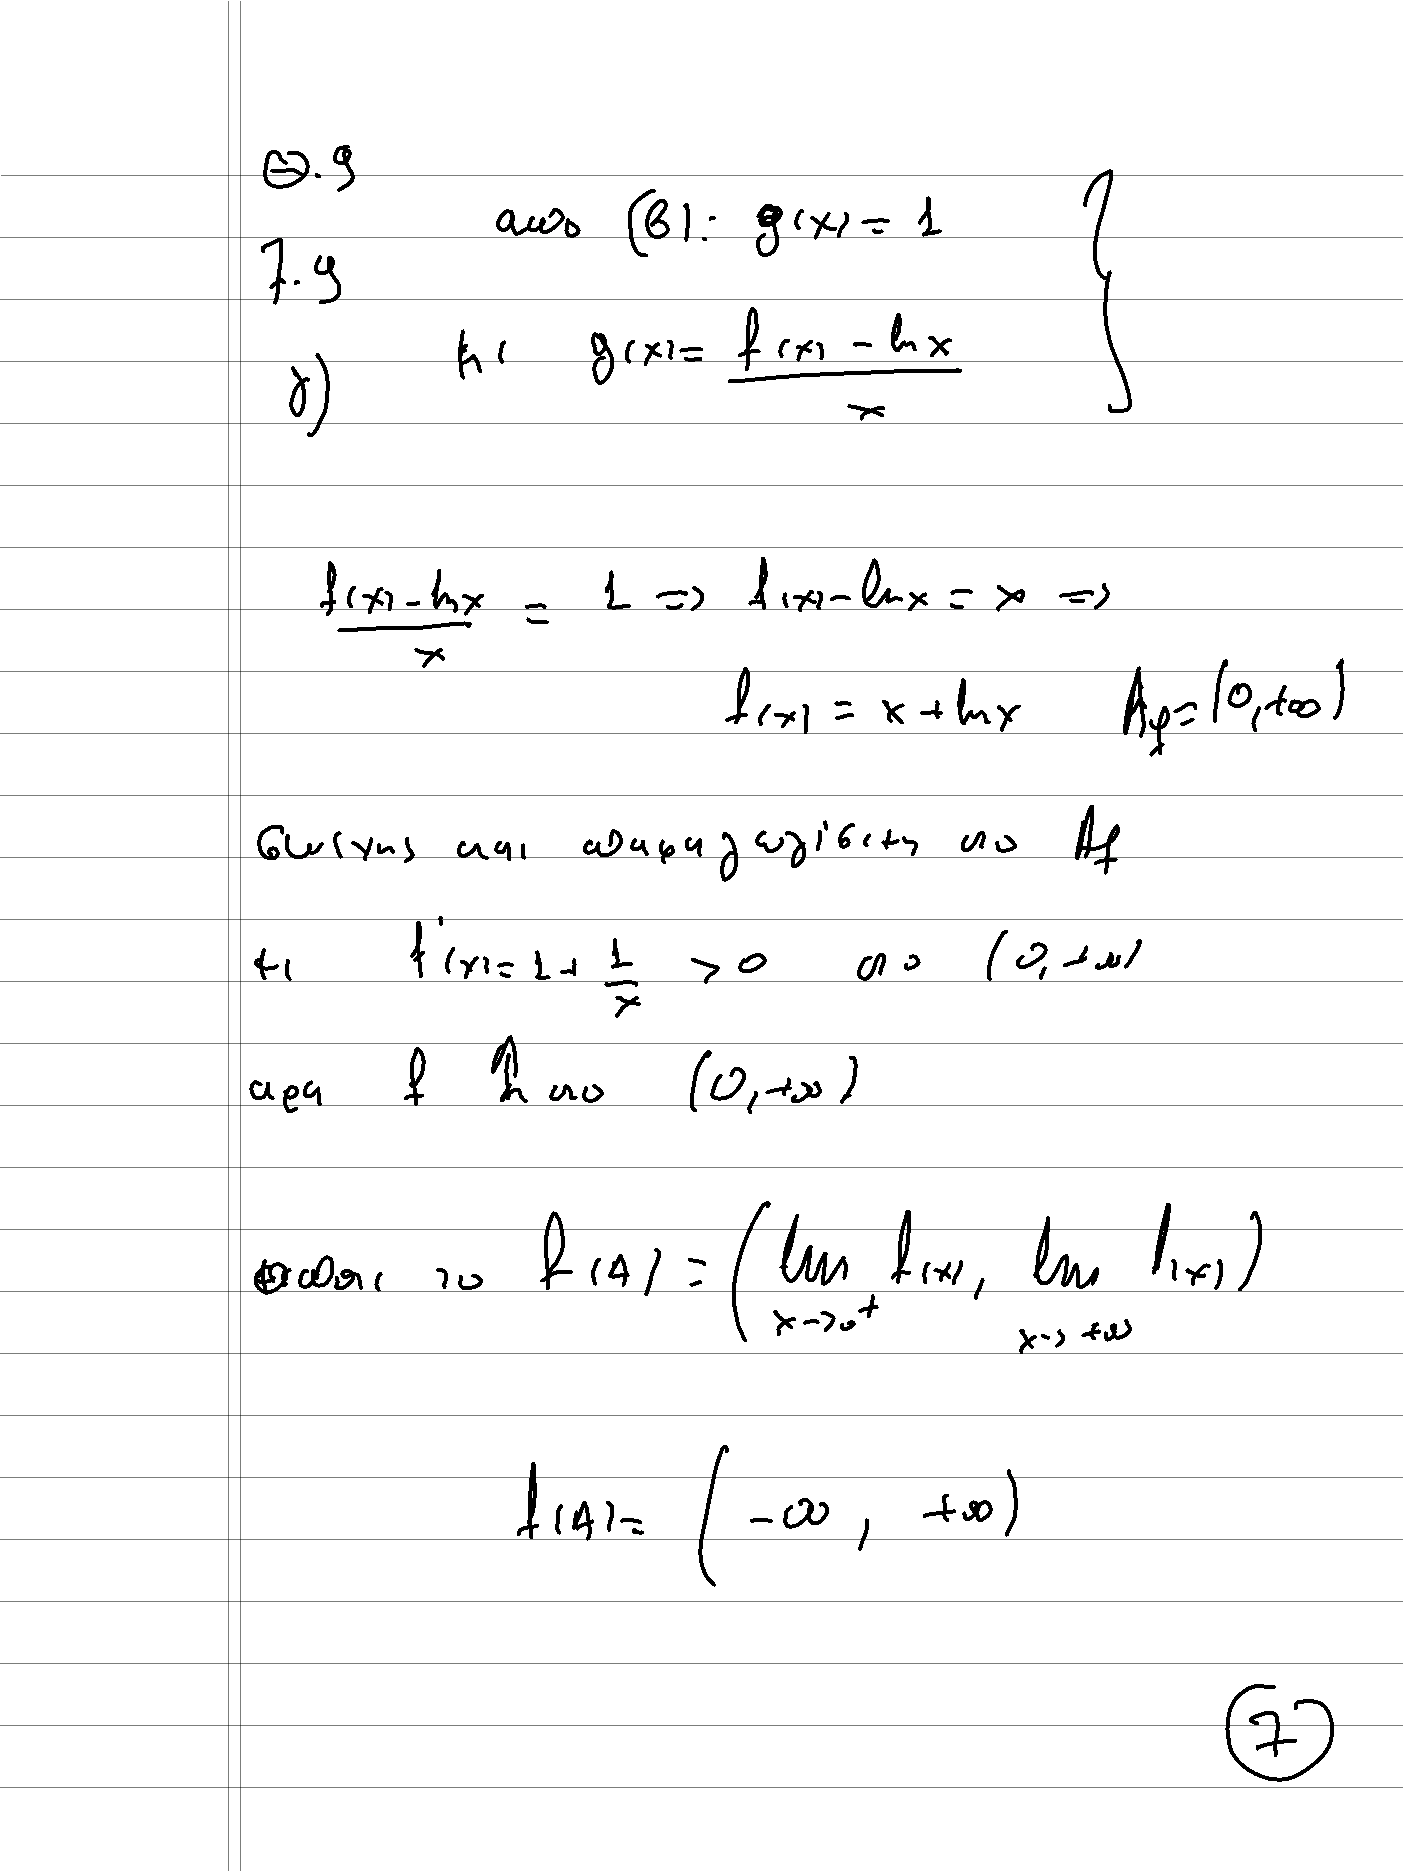 Θ.9
από (β): g(x) = 1
7.9
κι g(x) = f(x) - ln x / x
γ)
f(x) - ln x / x = 1 => f(x) - ln x = x =>
f(x) = x + ln x Af = (0, +∞)
συνεχης και παραγωγίσιμη στο Af
κι f'(x) = 1 + 1/x > 0 στο (0, +∞)
αρα f ↑ στο (0, +∞)
το f(A) = (lim x->0+ f(x), lim x->+∞ f(x))
f(A) = (-∞, +∞)
7